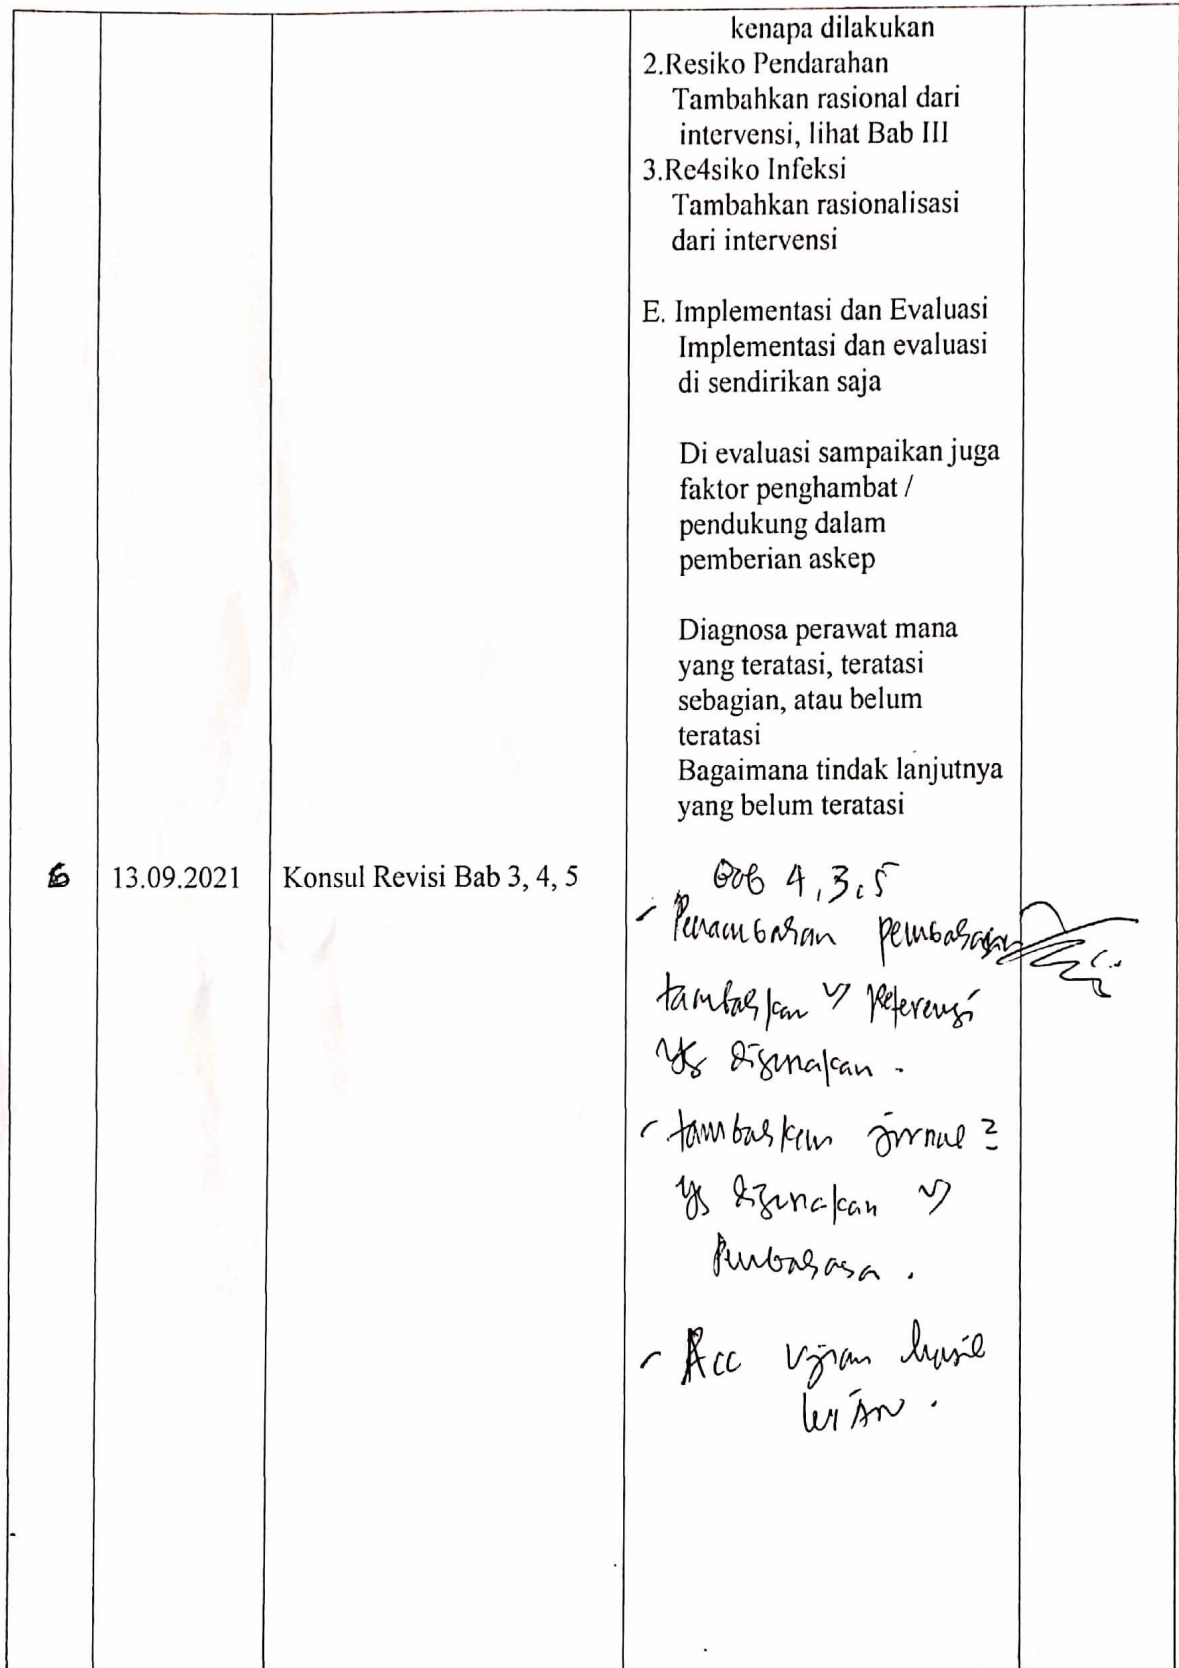 kenapa dilakukan
2.Resiko Pendarahan
Tambahkan rasional dari
intervensi, lihat Bab III
3.Re4siko Infeksi
Tambahkan rasionalisasi
dari intervensi
E. Implementasi dan Evaluasi
Implementasi dan evaluasi
di sendirikan saja
Di evaluasi sampaikan juga
faktor penghambat /
pendukung dalam
pemberian askep
Diagnosa perawat mana
yang teratasi, teratasi
sebagian, atau belum
teratasi
Bagaimana tindak lanjutnya
yang belum teratasi
6 13.09.2021 Konsul Revisi Bab 3, 4, 5
Bab 4, 3, 5
- pembahasan
tambahkan referensi
yg digunakan .
- tambahkan jurnal 2
yg digunakan
- Acc ujian hasil